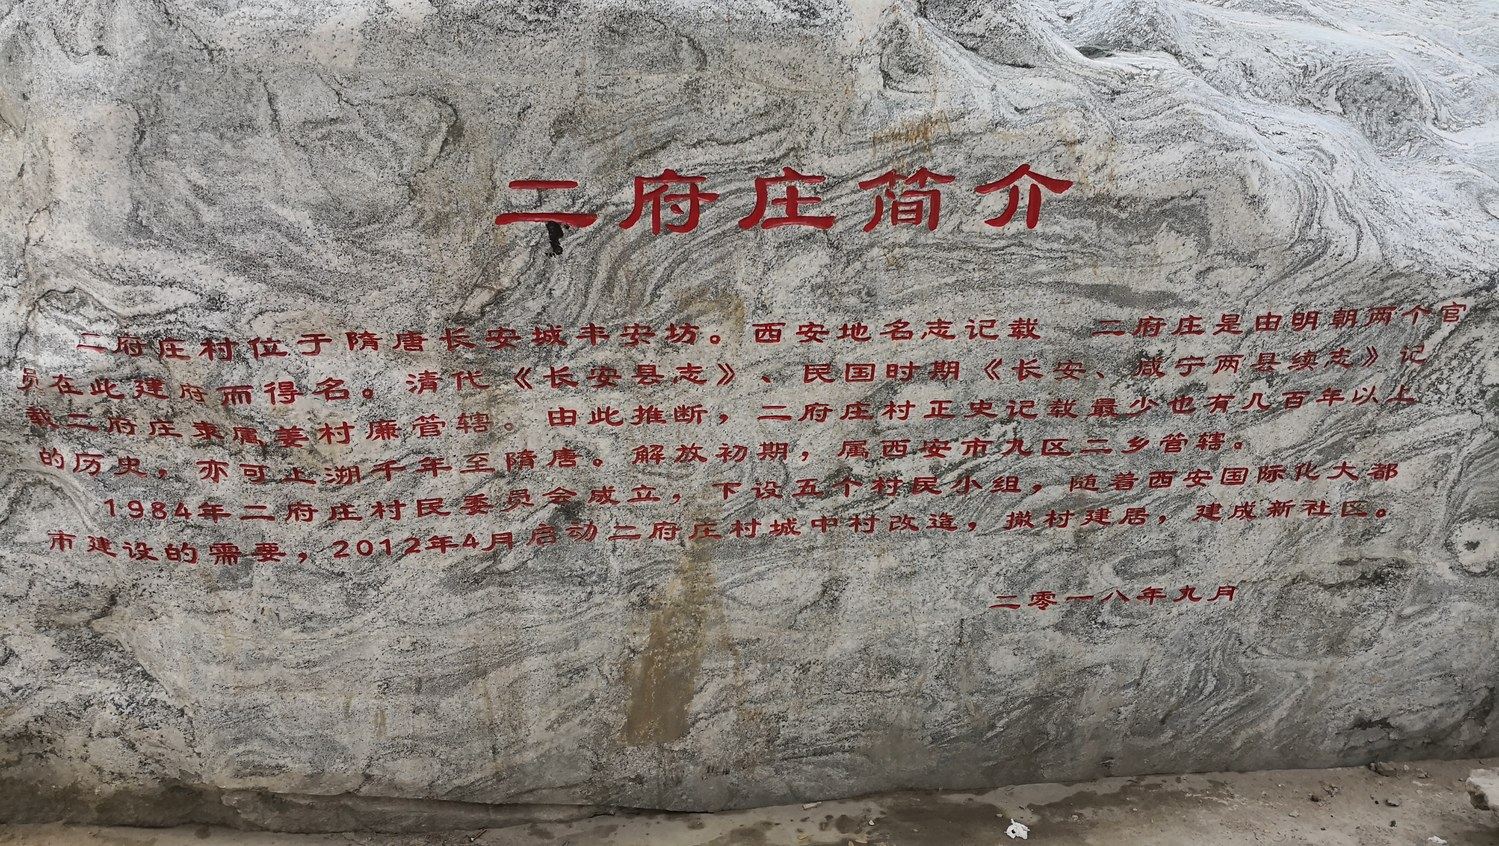 二府庄简介
二府庄村位于隋唐长安城丰安坊。西安地名志记载 二府庄是由明朝两个官
员在此建府而得名。清代《长安县志》、民国时期《长安、咸宁两县续志》记
载二府庄隶属姜村廉管辖。由此推断，二府庄村正史记载最少也有几百年以上
的历史，亦可上溯千年至隋唐。解放初期，属西安市九区二乡管辖。
1984年二府庄村民委员会成立，下设五个村民小组，随着西安国际化大都
市建设的需要，2012年4月启动二府庄村城中村改造，撤村建居，建成新社区。
二零一八年九月